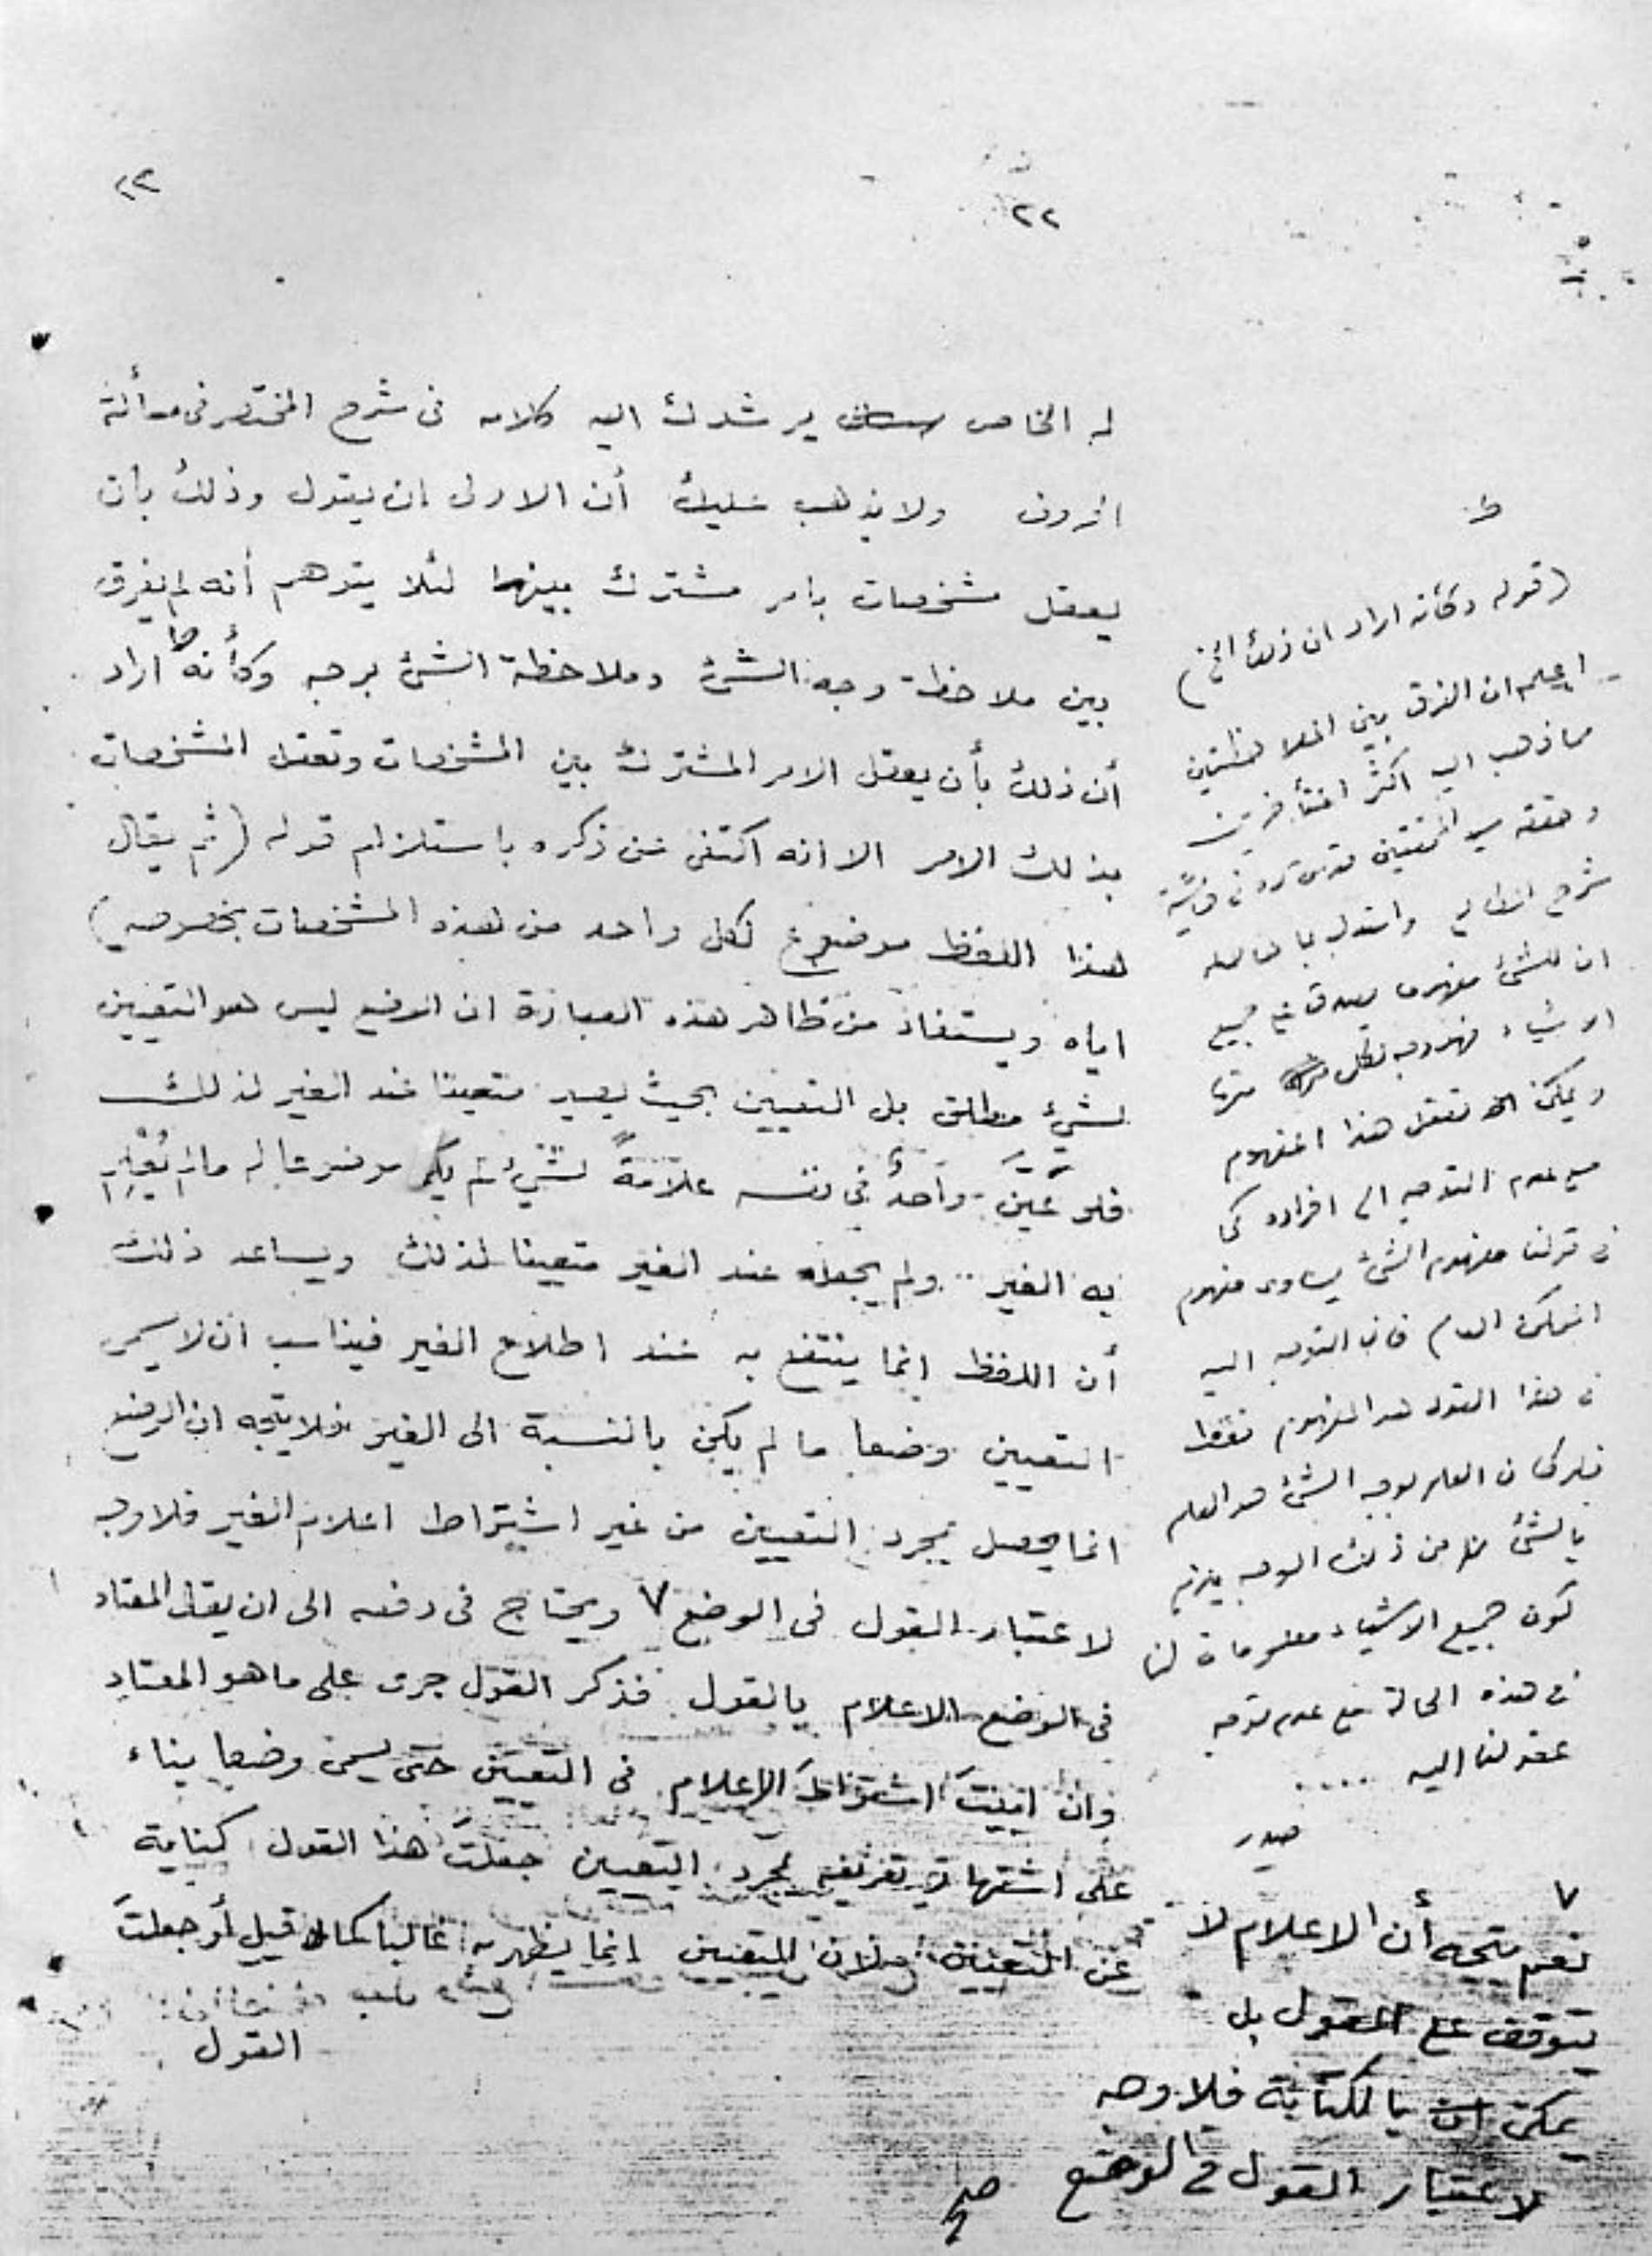 ٢٢
١٢
له الخاص يرشدك اليه كلامه فى شرح المختصر فى مسألة
الحروف ولا يذهب عليك أن الاولى ان يقول وذلك بأن
يعقل مشخصات بامر مشترك بينها لئلا يتوهم أنه لم يفرق
بين ملاحظة وجه الشئ وملاحظة الشئ بوجه وكأنه ط اراد
أن ذلك بأن يعقل الامر المشترك بين المشخصات وتعقل المشخصات
بذلك الامر الا انه اكتفى عن ذكره باستلزام قوله (ثم يقال
هذا اللفظ موضوع لكل واحد من هذه المشخصات بخصوصه)
اياه ويستفاد من ظاهر هذه العبارة ان الوضع ليس هو التعيين
لشئ مطلق بل التعيين بحيث يصير متعينا عند الغير لذلك
فلو عَيَّنَ واحدٌ فى نفسه علامةً لشئ لم يكن موضوعا له ما لم يُعْلِم
به الغير ولم يجعله عند الغير متعينا لذلك ويساعد ذلك
أن اللفظ انما ينتفع به عند اطلاع الغير فيناسب ان لا يسمى
التعيين وضعا ما لم يكن بالنسبة الى الغير فلا يتجه ان الوضع
انما يحصل بمجرد التعيين من غير اشتراط اعلام الغير فلا وجه
لاعتبار القول فى الوضع ٧ ويحتاج فى دفعه الى ان يقال المعتاد
فى الوضع الاعلام بالقول فذكر القول جرى على ما هو المعتاد
وان ابيتَ اشتراطَ الاعلام فى التعيين حتى يسمى وضعا بناء
على اشتهار تعريفه بمجرد التعيين جعلتَ هذا القول كناية
عن التعيين لان التعيين انما يظهر به غالبا كما قيل أو جعلتَ
القول
ط
(قوله وكأنه اراد ان ذلك الخ)
اعلم ان الفرق بين الملاحظتين
مما ذهب اليه اكثر المتأخرين
وحققه سيد المحققين قدس سره فى حاشية
شرح المطالع واستدل بما حاصله
ان للشئ مفهوما يصدق على جميع
الاشياء فهو وجه لكل منها
ويمكن تعقل هذا المفهوم
مع عدم التوجه الى افراده كما
فى قولنا مفهوم الشئ يساوى مفهوم
الممكن العام فان التوجه اليه
فى هذا القول هو المفهوم فقط
فلو كان العلم بوجه الشئ هو العلم
بالشئ من ذلك الوجه يلزم
كون جميع الاشياء معلومات لنا
فى هذه الحالة مع عدم توجه
عقولنا اليه ....
صدر
٧
نعم يتجه أن الاعلام لا
يتوقف على القول بل
يمكن بالكتابة فلا وجه
لاعتبار القول فى الوضع
صح